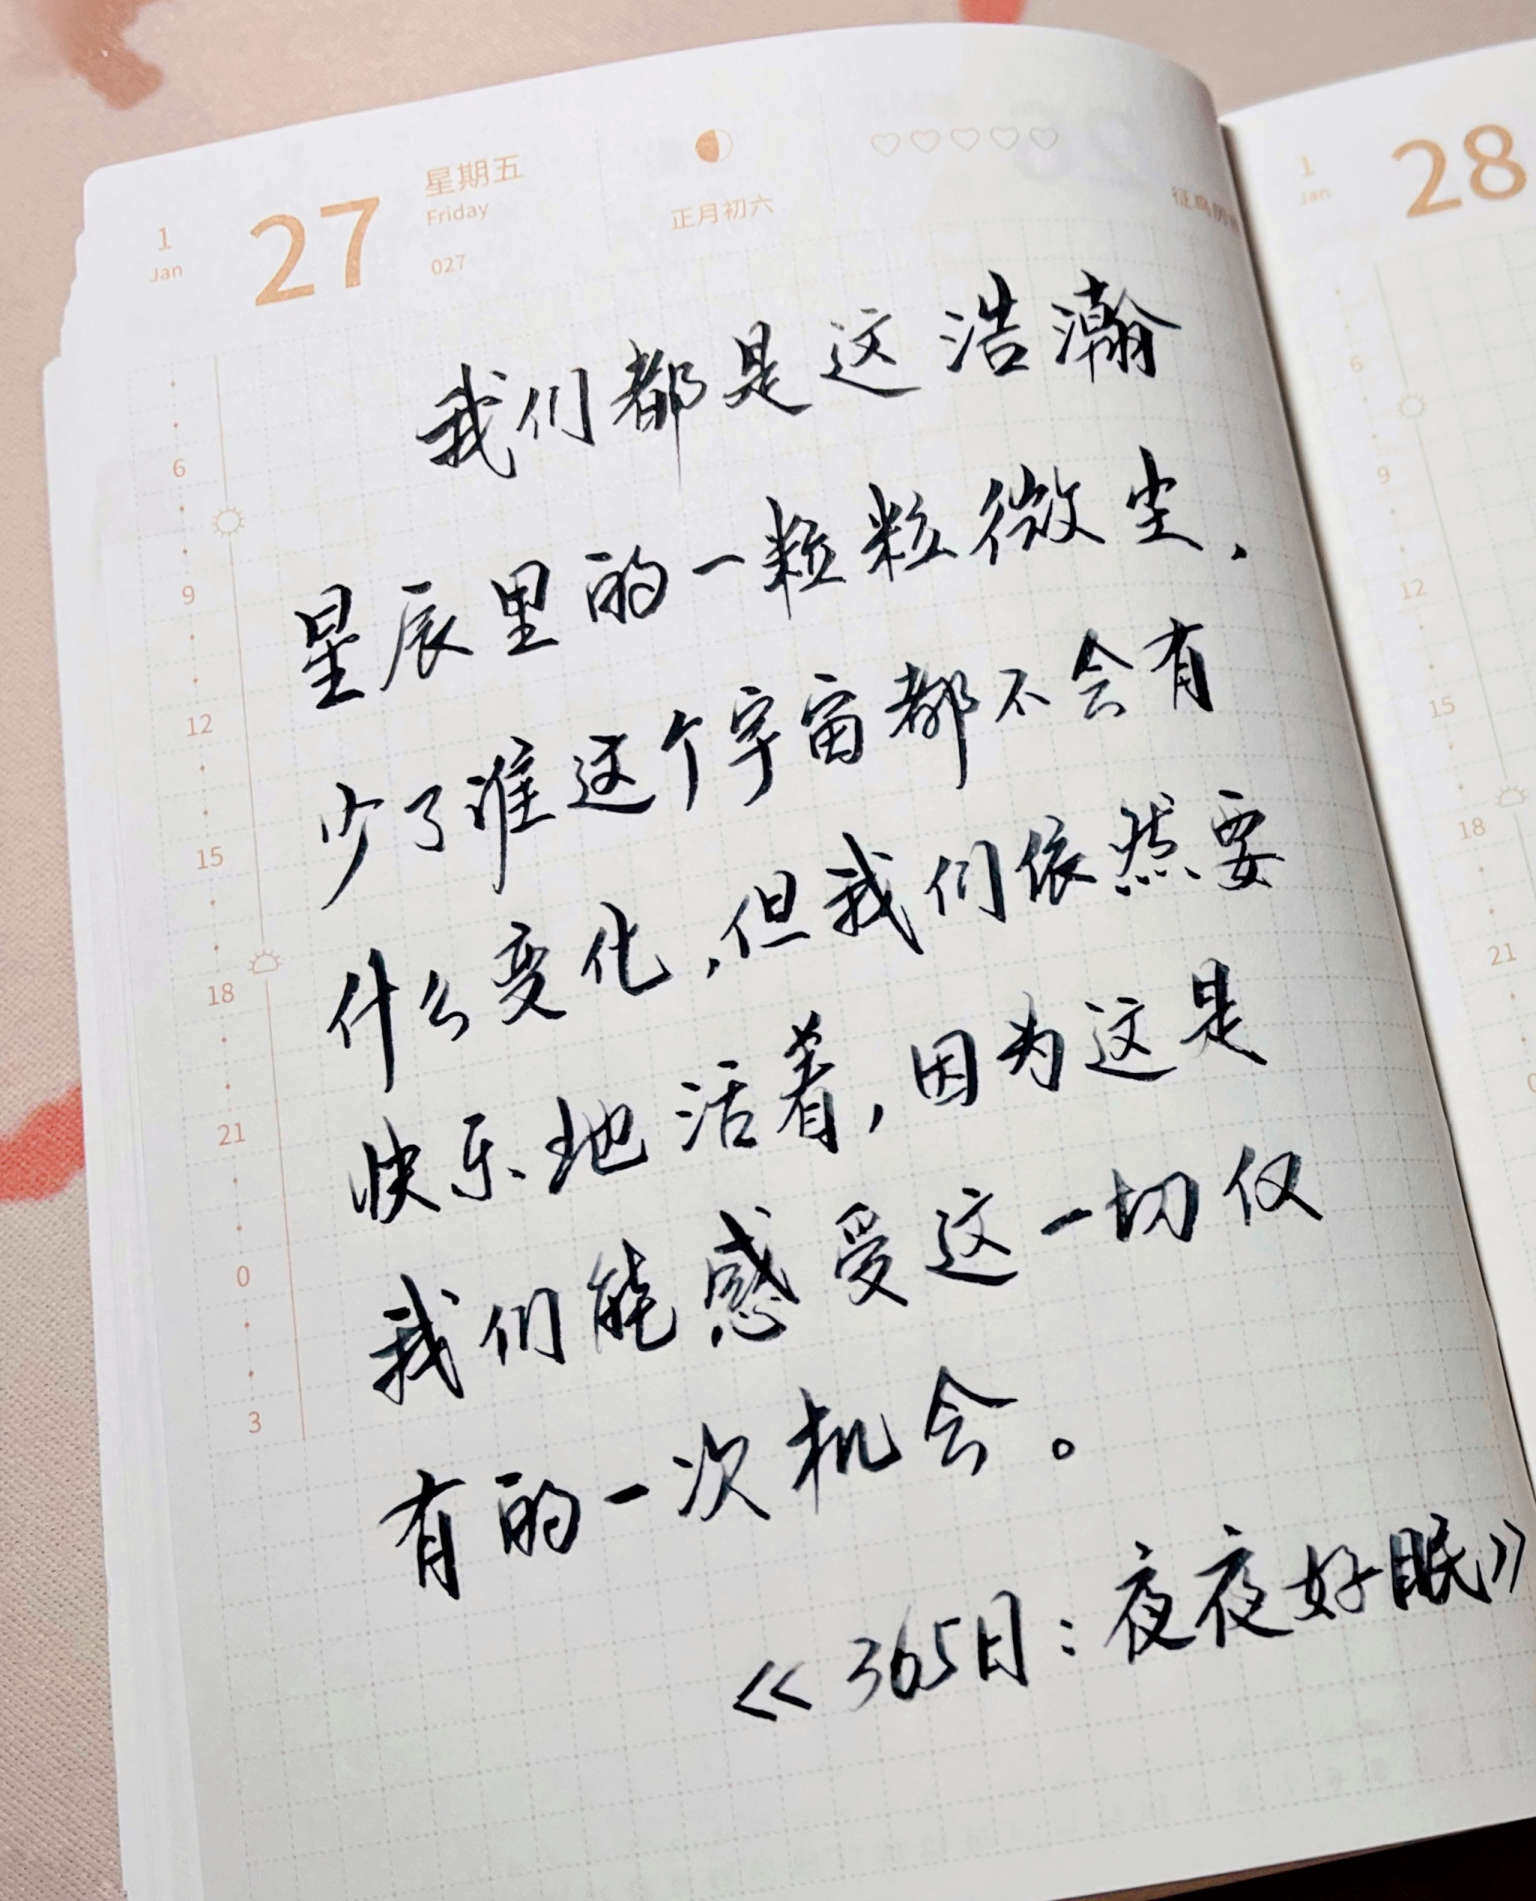 1
Jan
27
星期五
Friday
027
正月初六
1
Jan
28
我们都是这浩瀚
星辰里的一粒粒微尘.
少了谁这个宇宙都不会有
什么变化,但我们依然要
快乐地活着,因为这是
我们能感受这一切仅
有的一次机会。
《365日:夜夜好眠》
6
9
12
15
18
21
0
3
6
9
12
15
18
21